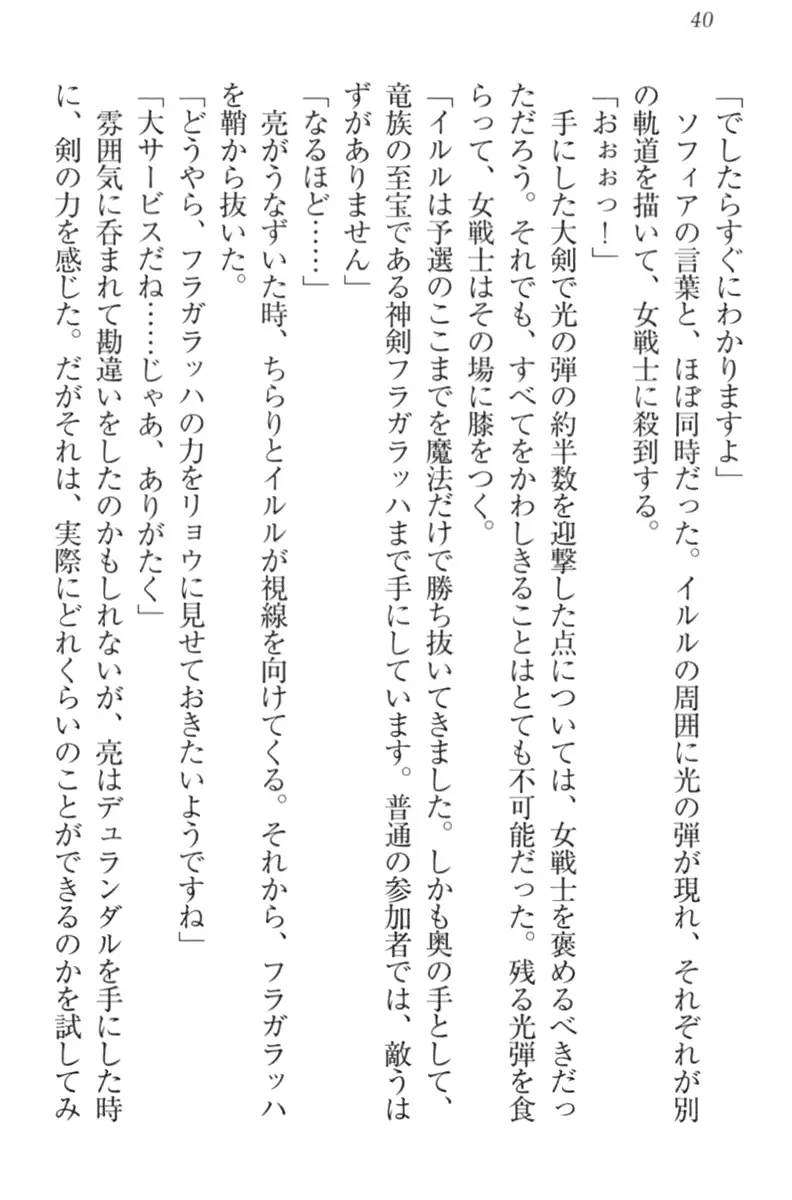 40
「でしたらすぐにわかりますよ」
　ソフィアの言葉と、ほぼ同時だった。イルルの周囲に光の弾が現れ、それぞれが別
の軌道を描いて、女戦士に殺到する。
「おぉぉっ！」
　手にした大剣で光の弾の約半数を迎撃した点については、女戦士を褒めるべきだっ
ただろう。それでも、すべてをかわしきることはとても不可能だった。残る光弾を食
らって、女戦士はその場に膝をつく。
「イルルは予選のここまでを魔法だけで勝ち抜いてきました。しかも奥の手として、
竜族の至宝である神剣フラガラッハまで手にしています。普通の参加者では、敵うは
ずがありません」
「なるほど……」
　亮がうなずいた時、ちらりとイルルが視線を向けてくる。それから、フラガラッハ
を鞘から抜いた。
「どうやら、フラガラッハの力をリョウに見せておきたいようですね」
「大サービスだね……じゃあ、ありがたく」
　雰囲気に呑まれて勘違いをしたのかもしれないが、亮はデュランダルを手にした時
に、剣の力を感じた。だがそれは、実際にどれくらいのことができるのかを試してみ